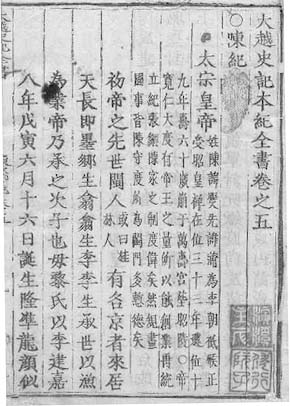 大越史記本紀全書卷之五
○陳紀
太宗皇帝
姓陳諱煚先諱蒲為李朝祗候正
受昭皇禪在位三十三年遜位十
九年壽六十歲崩于萬壽宮葬昭陵○帝
寬仁大度有帝王之量所以創業垂統
立紀張綱陳家之制度偉矣然規畫
國事皆陳守度所為閨門多慙德矣
初帝之先世閩人或曰桂林人有名京者來居
天長即墨鄉生翕翕生李李生承世以漁
為業帝乃承之次子也母黎氏以李建嘉
八年戊寅六月十六日誕生隆準龍顏似